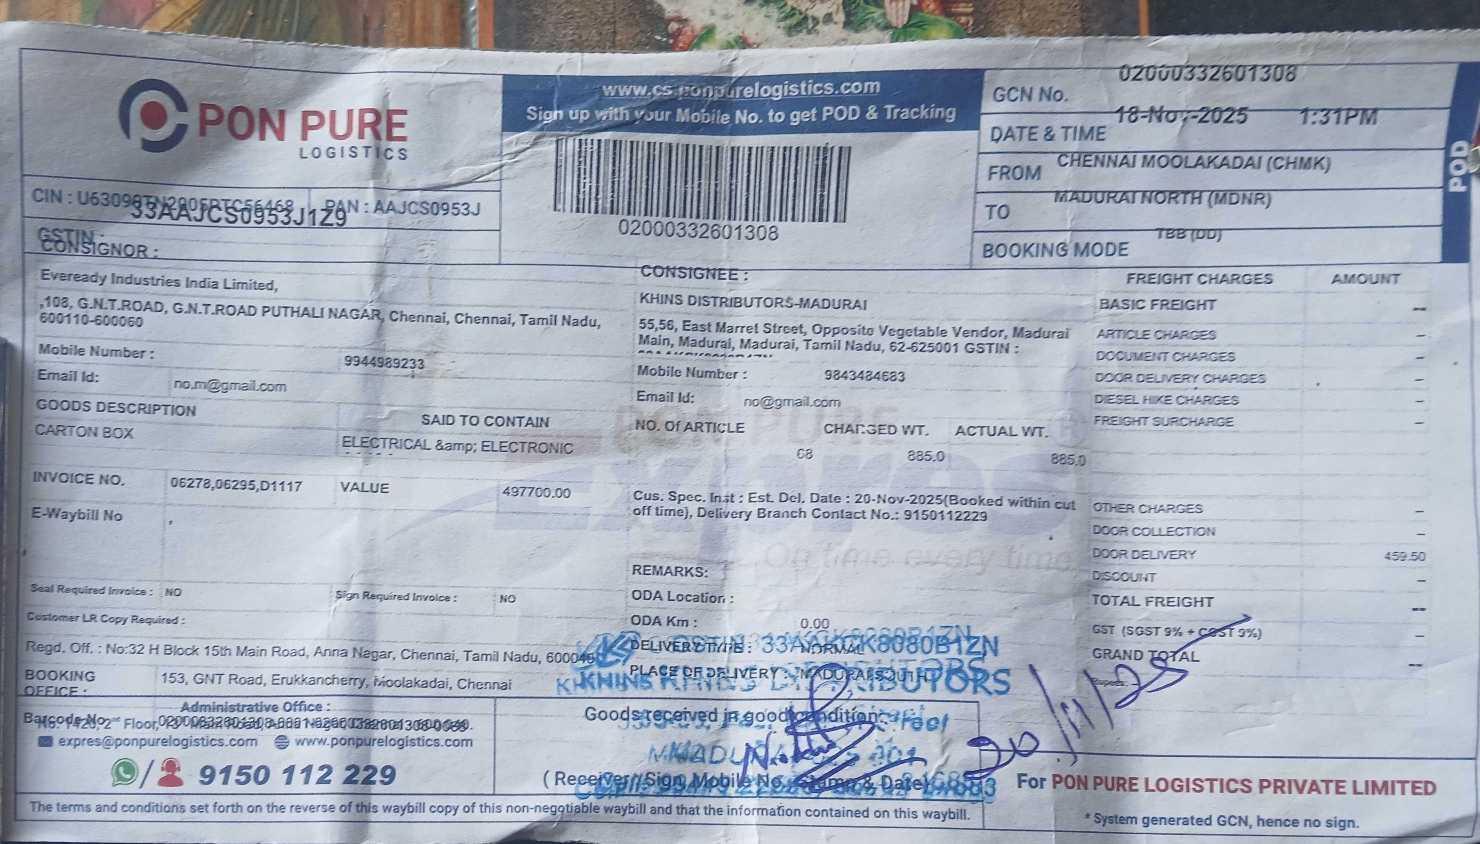 PON PURE
LOGISTICS
www.cs.ponpurelogistics.com
Sign up with your Mobile No. to get POD & Tracking
02000332601308
GCN No. 02000332601308
DATE & TIME 18-Nov-2025 1:31PM
FROM CHENNAI MOOLAKADAI (CHMK)
TO MADURAI NORTH (MDNR)
BOOKING MODE TBB (DD)
POD
CIN : PAN : AAJCS0953J
33AAJCS0953J1Z9
GSTIN :
CONSIGNOR :
Eveready Industries India Limited,
,108, G.N.T.ROAD, G.N.T.ROAD PUTHALI NAGAR, Chennai, Chennai, Tamil Nadu,
600110-600060
Mobile Number : 9944989233
Email Id: no.m@gmail.com
GOODS DESCRIPTION SAID TO CONTAIN
CARTON BOX ELECTRICAL &amp; ELECTRONIC
INVOICE NO. 06278,06295,D1117 VALUE 497700.00
E-Waybill No ,
Seal Required Invoice : NO Sign Required Invoice : NO
Customer LR Copy Required :
Regd. Off. : No:32 H Block 15th Main Road, Anna Nagar, Chennai, Tamil Nadu, 600040
BOOKING OFFICE : 153, GNT Road, Erukkancherry, Moolakadai, Chennai
CONSIGNEE :
KHINS DISTRIBUTORS-MADURAI
55,56, East Marret Street, Opposite Vegetable Vendor, Madurai
Main, Madurai, Madurai, Tamil Nadu, 62-625001 GSTIN :
Mobile Number : 9843484683
Email Id: no@gmail.com
NO. Of ARTICLE CHARGED WT. ACTUAL WT.
68 885.0 885.0
Cus. Spec. Inst : Est. Del. Date : 20-Nov-2025(Booked within cut
off time), Delivery Branch Contact No.: 9150112229
On time every time
REMARKS:
ODA Location :
ODA Km : 0.00
DELIVERY TYPE : NORMAL
PLACE OF DELIVERY : MADURAI SOUTH
FREIGHT CHARGES AMOUNT
BASIC FREIGHT --
ARTICLE CHARGES --
DOCUMENT CHARGES --
DOOR DELIVERY CHARGES --
DIESEL HIKE CHARGES --
FREIGHT SURCHARGE --
OTHER CHARGES --
DOOR COLLECTION --
DOOR DELIVERY 459.50
DISCOUNT --
TOTAL FREIGHT --
GST (SGST 9% + CGST 9%) --
GRAND TOTAL --
Rupees
Administrative Office :
Barcode No
expres@ponpurelogistics.com www.ponpurelogistics.com
9150 112 229
Goods received in good condition
(Receiver Sign, Mobile No. Stamp & Date)
20/11/25
For PON PURE LOGISTICS PRIVATE LIMITED
The terms and conditions set forth on the reverse of this waybill copy of this non-negotiable waybill and that the information contained on this waybill.
* System generated GCN, hence no sign.